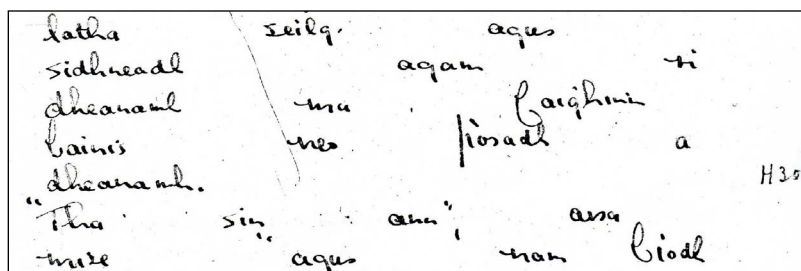 latha seilg. agus
sidhneadh agam ri
dheanamh ma faighinn
bainis neo pòsadh a
dheanamh.
H30
"Tha sin ann", arsa
mise "agus nam biodh